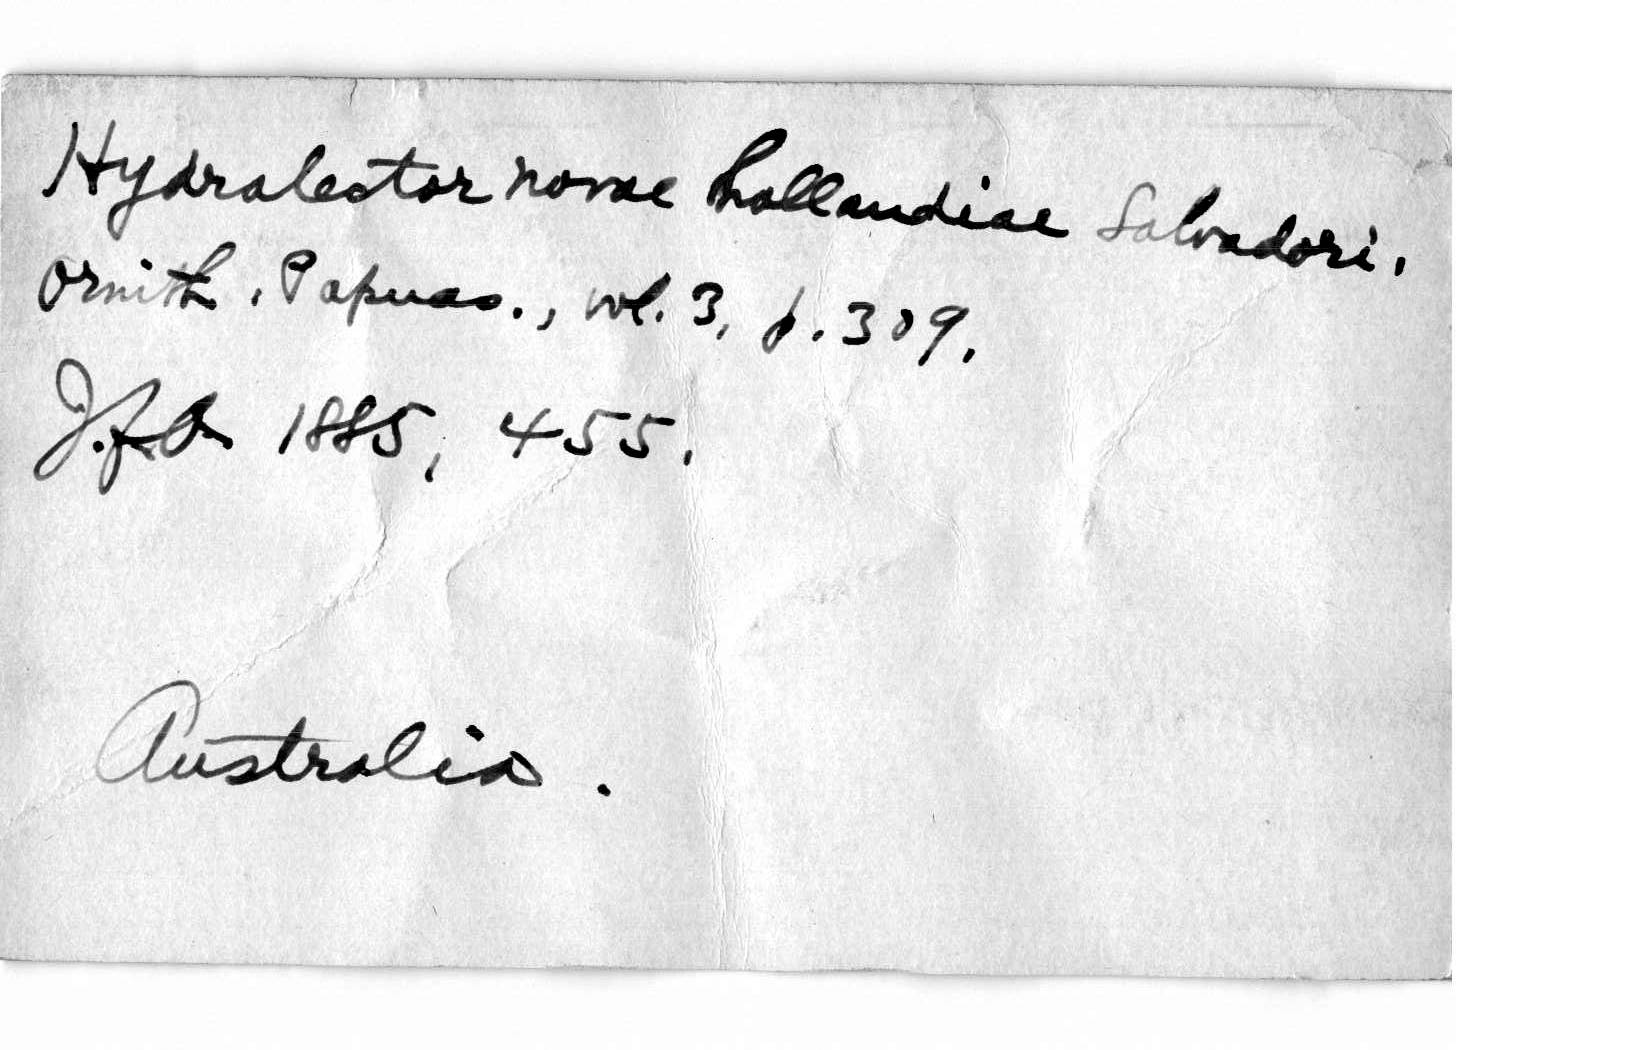 Hydralector novae hollandiae Salvadori.
Ornith. Papuas., vol. 3, p. 309.
J.f.O. 1885, 455.
Australia.